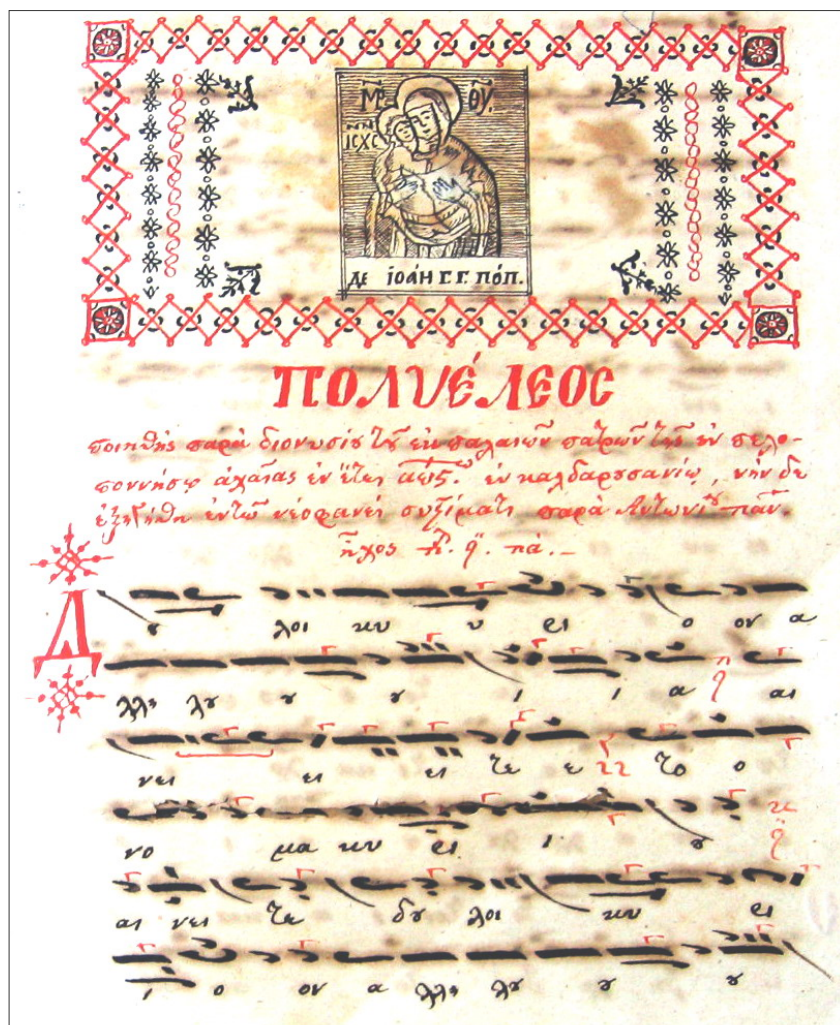 ΜΡ ΘΥ
ΙC ΧC
ΔΕ ΙΟΆΗ Γ. Γ. ΠΌΠ.
ΠΟΛΥΈΛΕΟC
ποιηθὴς παρὰ διονυσίου τοῦ ἐκ παλαιῶν πατρῶν τῆς ἐν πελο-
ποννήσῳ ἀχαΐας ἐν ἔτει αωϛ. ἐν καλδαρυσανίῳ, νῦν δε
ἐξηγήθη ἐν τῷ νέοφανεῖ συξίματι παρὰ Ἀντωνίου παν.
ἦχος πα. –
Δ ȣ λοι κυ υ ει ο ον α
λλη λȣ ȣ ȣ ι ι α αι
νει ει ει τε ε το ο
νο μα κυ ει ι ȣ
αι νει τε δȣ λοι κυ ει
ι ο ον α λλη λȣ ȣ ȣ